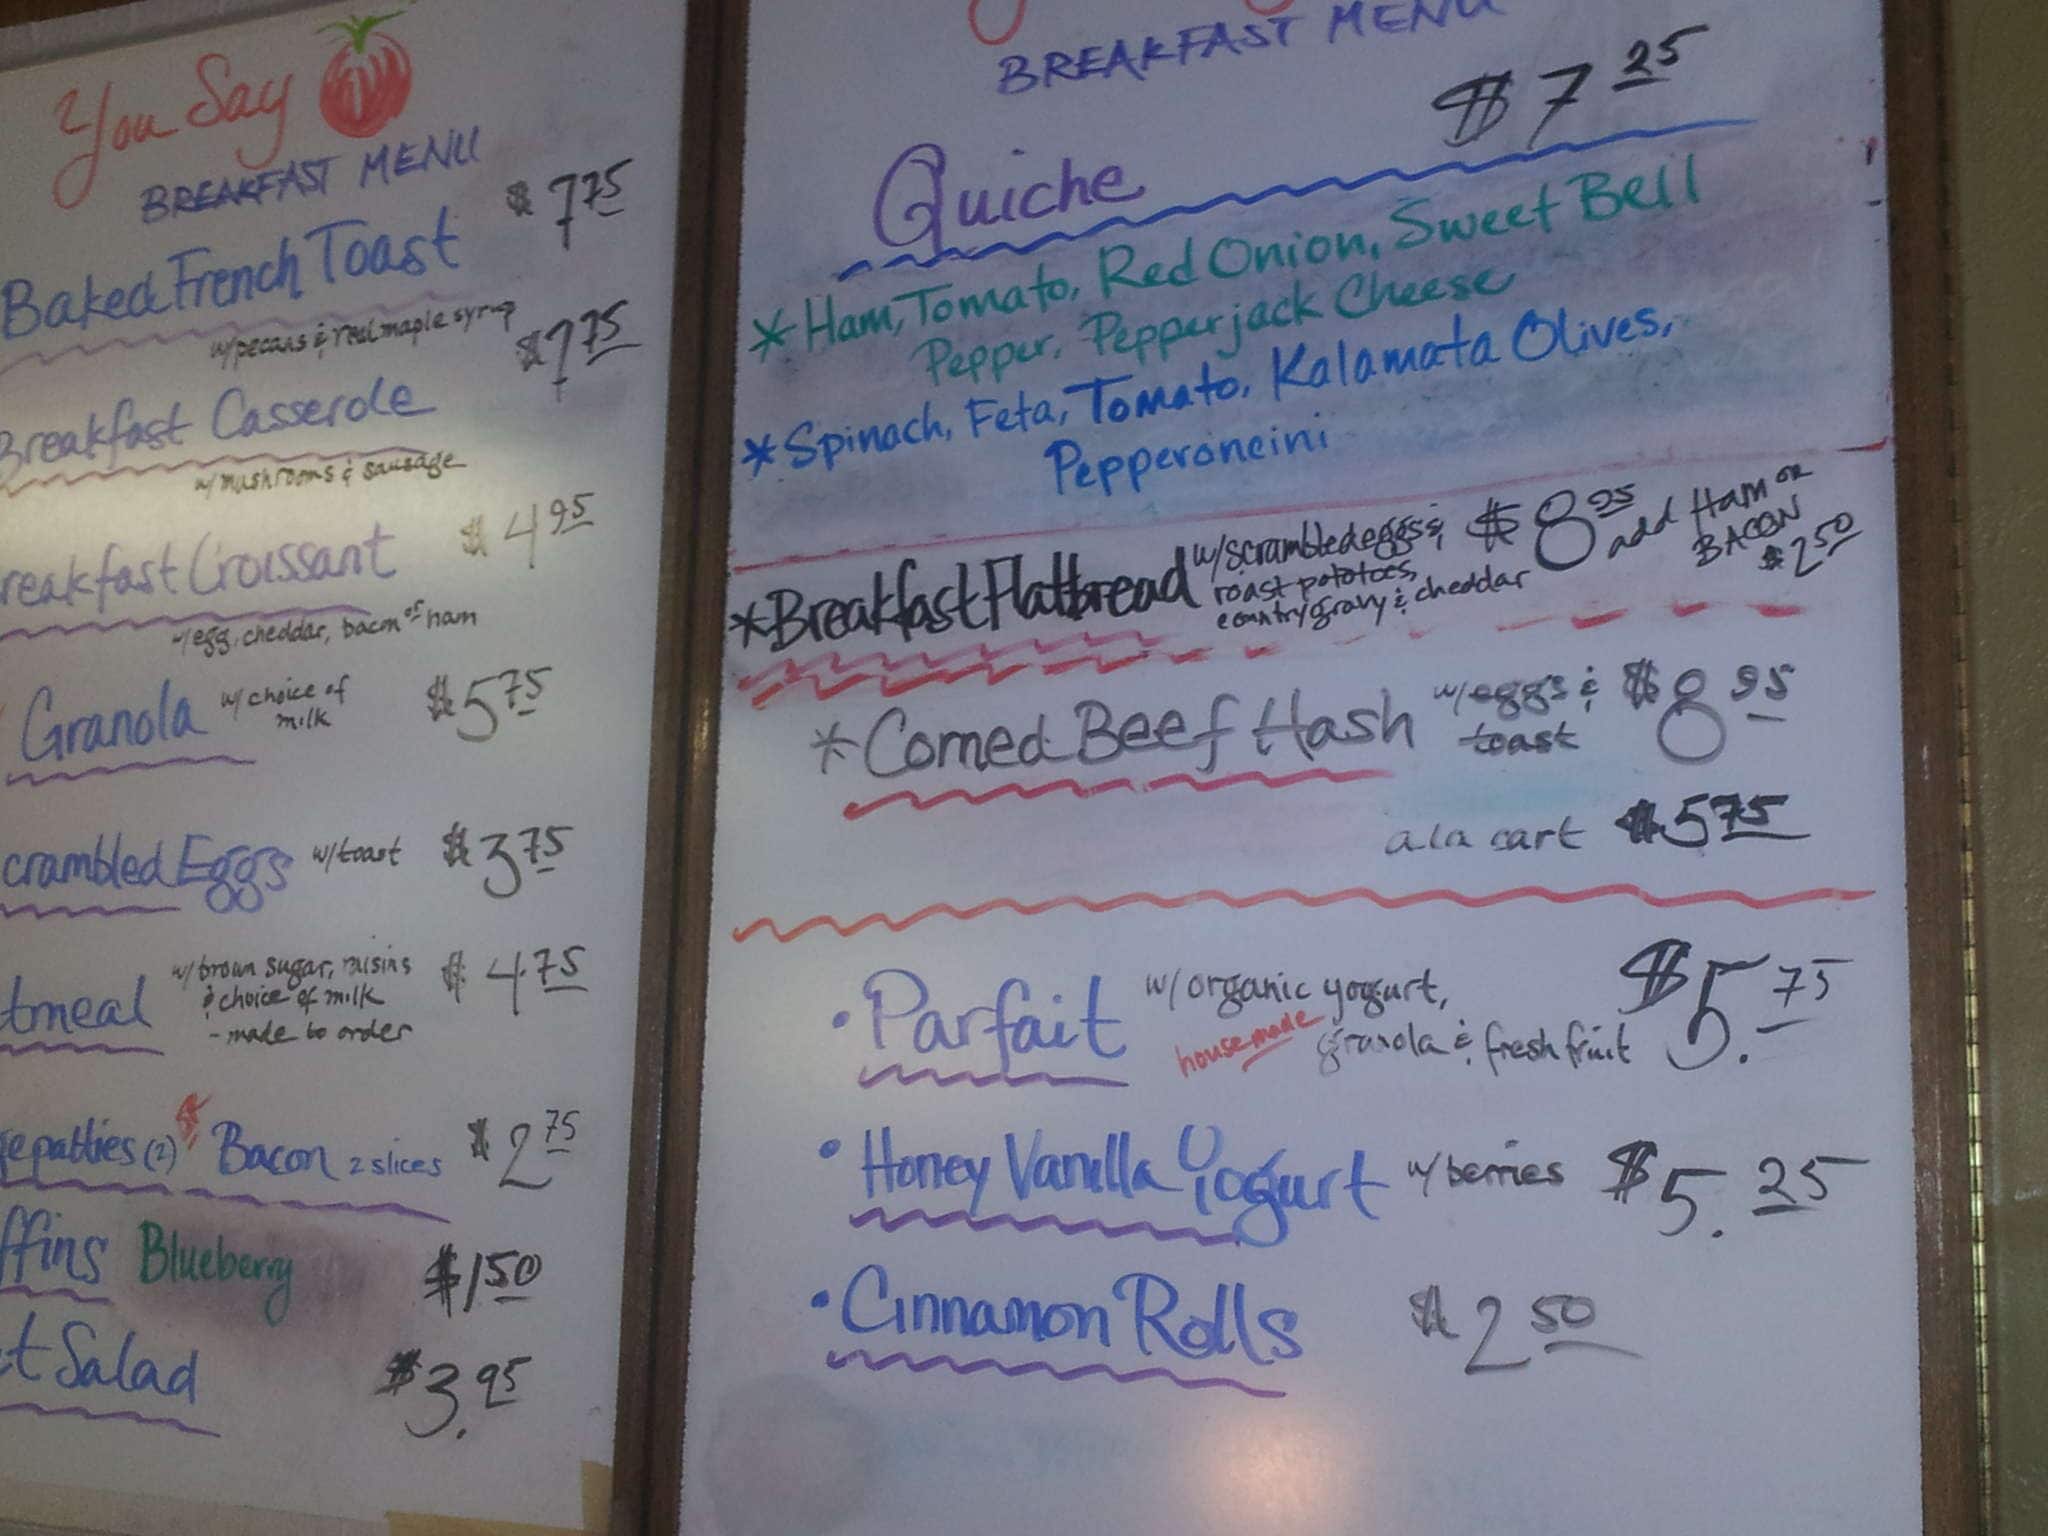 You Say
BREAKFAST MENU
Baked French Toast $7.75
w/pecans & real maple syrup
Breakfast Casserole $7.75
w/mushrooms & sausage
reakfast Croissant $4.95
w/egg, cheddar, bacon or ham
Granola w/choice of milk $5.75
crambled Eggs w/toast $3.75
tmeal w/brown sugar, raisins $4.75
& choice of milk
- made to order
epatties (2) Bacon 2 slices $2.75
ffins Blueberry $1.50
t Salad $3.95
BREAKFAST MENU
$7.25
Quiche
*Ham, Tomato, Red Onion, Sweet Bell
Pepper, Pepperjack Cheese
*Spinach, Feta, Tomato, Kalamata Olives,
Pepperoncini
*Breakfast Flatbread w/scrambled eggs & $8.95 add Ham or
roast potatoes, BACON
country gravy & cheddar $2.50
*Corned Beef Hash w/eggs & $8.95
toast
a la cart $5.75
•Parfait w/organic yogurt, $5.75
housemade granola & fresh fruit
•Honey Vanilla Yogurt w/berries $5.25
•Cinnamon Rolls $2.50